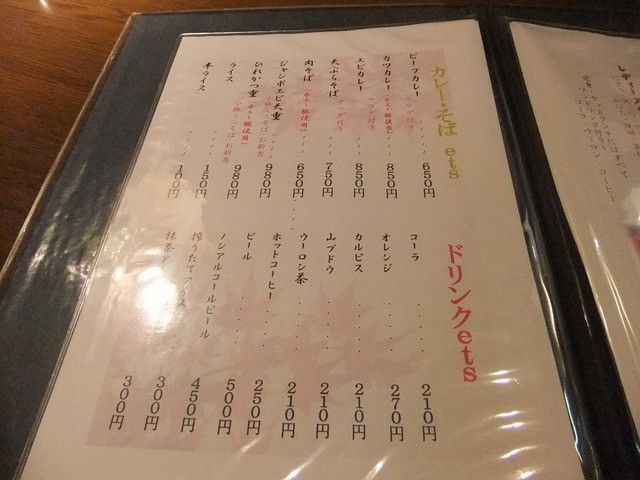 カレー・そば ets
ビーフカレー サラダ付き 650円
カツカレー (ホエー豚使用) 850円
エビカレー サラダ付き 850円
天ぷらそば サラダ付き 750円
肉そば (ホエー豚使用) 650円
ジャンボエビ天重 980円
ひれかつ重 (ホエー豚使用) 980円
ライス 150円
半ライス 100円
ドリンク ets
コーラ 210円
オレンジ 270円
カルピス 210円
山ブドウ 210円
ウーロン茶 210円
ホットコーヒー 250円
ビール 500円
ノンアルコールビール 450円
搾りたてアイス 300円
抹茶ア 300円